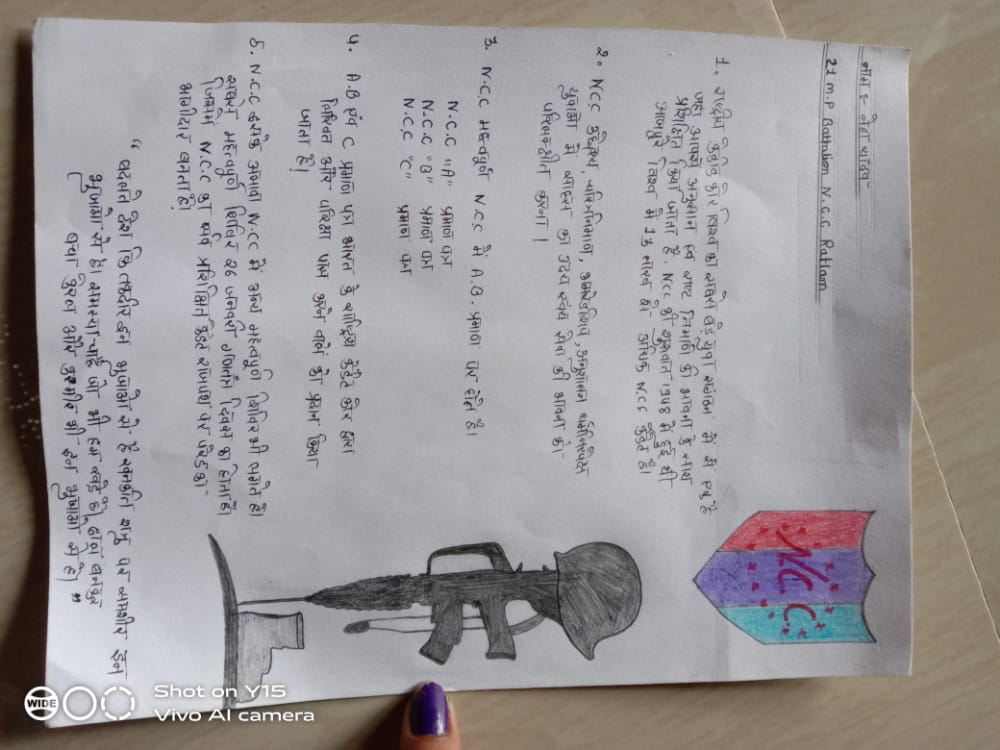 नाम :- नेहा यादव
21 M.P Battalion N.C.C. Ratlam
1. राष्ट्रीय कैडेट कोर विश्व का सबसे बड़े युवा संगठन में से एक है
जहाँ आपको अनुशासन एवं राष्ट निर्माण की भावना के साथ
प्रशिक्षित किया जाता है. NCC की शुरुवात 1948 में हुई थी
आजपुरे विश्व में 13 लाख से अधिक N.C.C कैडेट है।
२. NCC उद्देश्य, चरित्रनिर्माण, कामरेडशिप, अनुशासन धर्मनिरपेक्ष
युवाओं में साहस का उदय स्वयं सेवा की भावना को
परिलक्षीत करना।
3. N.C.C महत्वपूर्ण N.C.C में A.B. प्रमाण पत्र होते है।
N.C.C "A" प्रमाण पत्र
N.C.C "B" प्रमाण पत्र
N.C.C "C" प्रमाण पत्र
५. A.B एवं C प्रमाण पत्र भारत के राष्ट्रिय कैडेट कोर द्वारा
लिखित और परिक्षा पास करने वालों को प्रदान किया
जाता है।
5. N.C.C इसके अलावा N.C.C में अन्य महत्वपूर्ण शिविर भी लगते है।
सबसे महत्वपूर्ण शिविर २६ जनवरी गणतंत्र दिवस का होता है।
जिसमें N.C.C का प्रशिक्षित कैडेट राजपथ पर परेड का-
भागीदार बनता है।
" बदलते देश कि तस्वीर इन भुजाओ से है रक्तर्जात शत्रु पर शमशीर इन
भुजाओ से है। समस्या चाहे जो भी हम खड़े है, ढाल बनकर
बचा केरल और कश्मीर भी इन भुजाओ से है। "
N.C.C
WIDE
Shot on Y15
Vivo AI camera